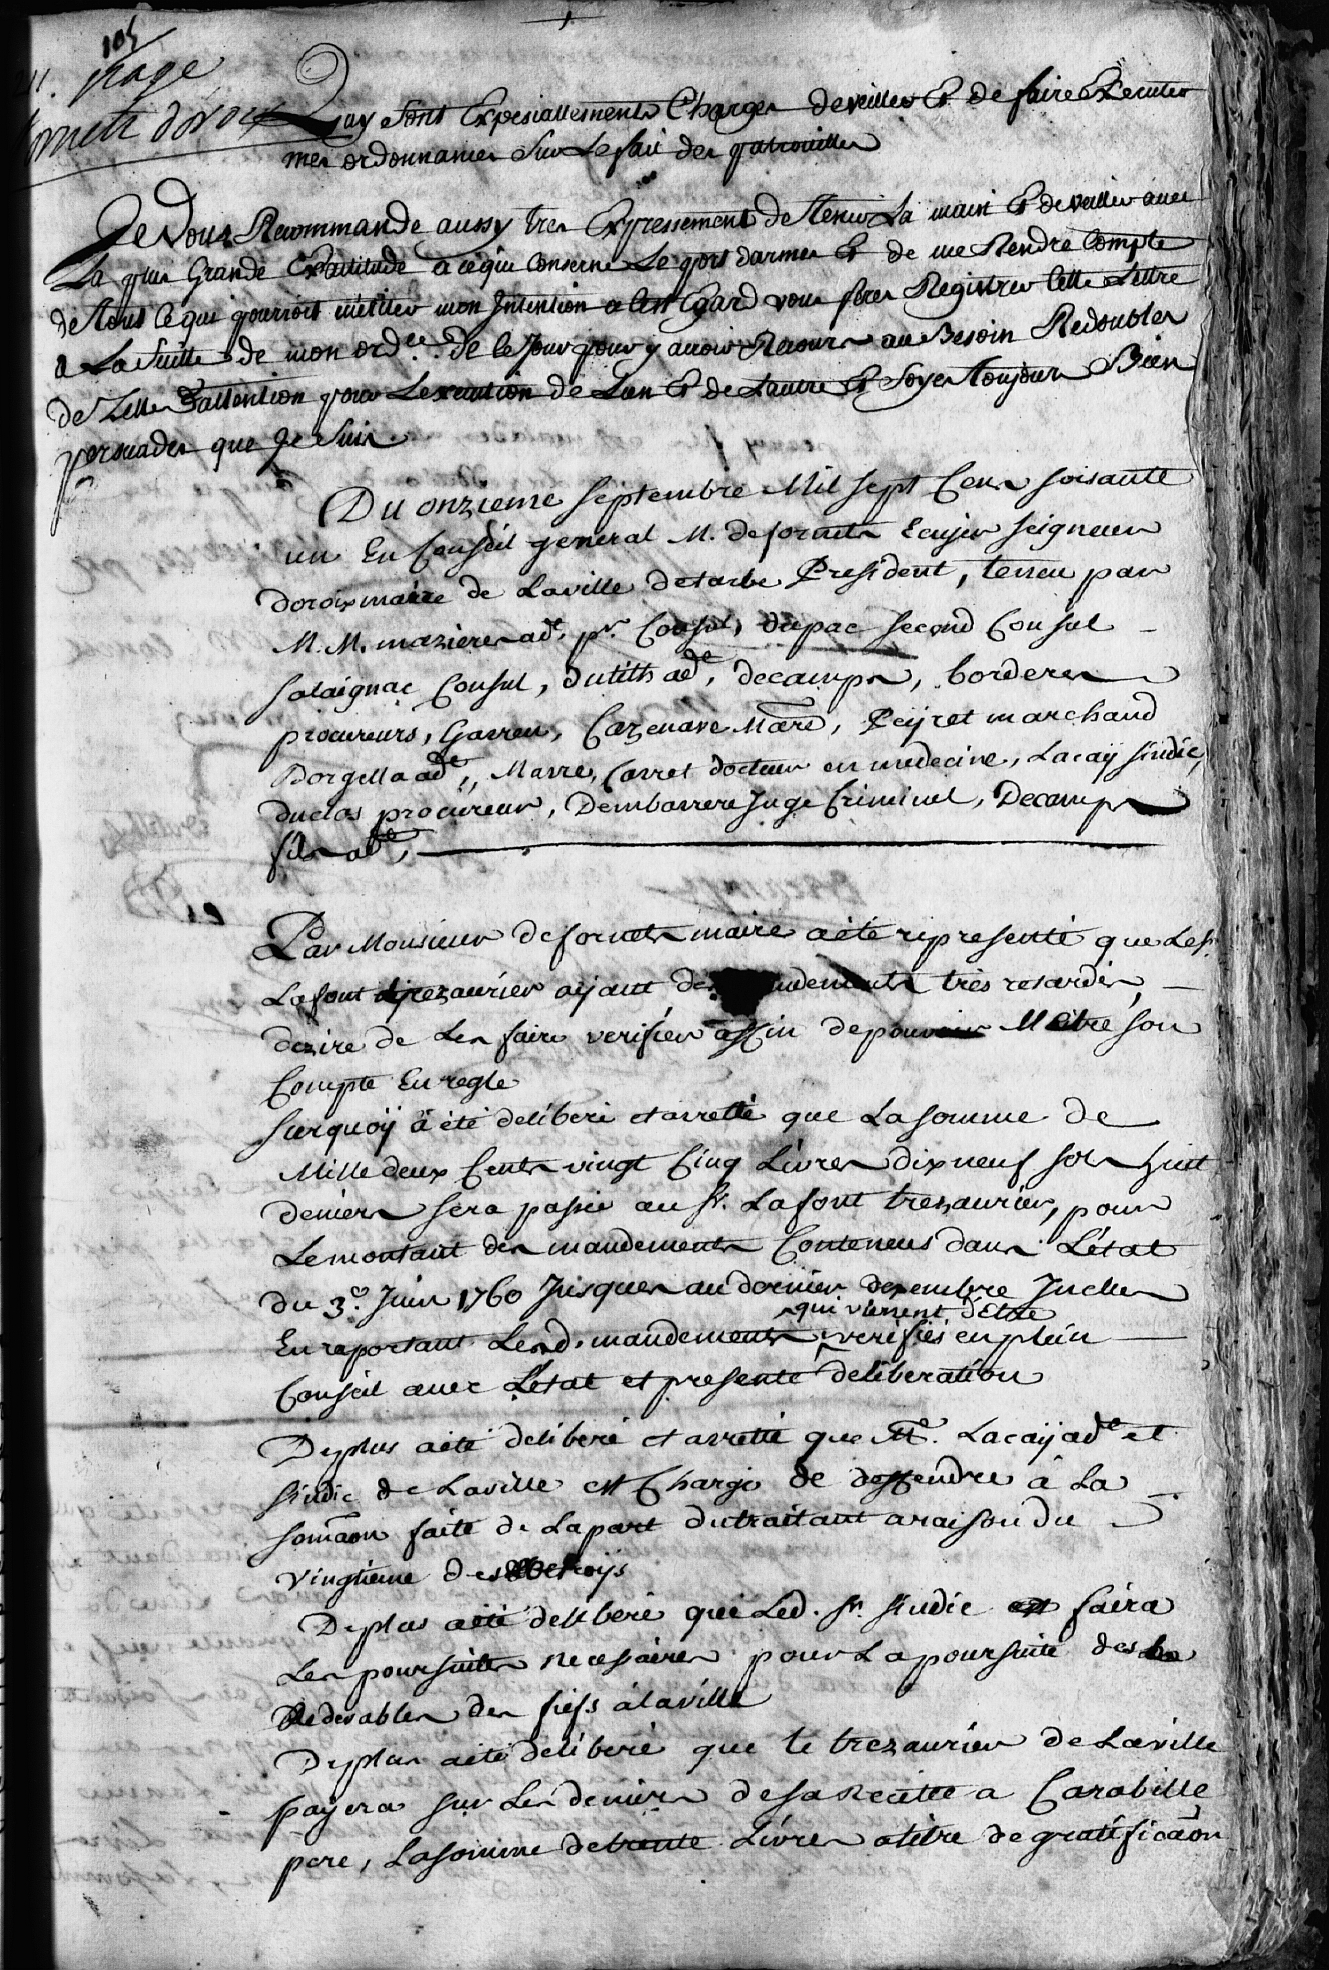 105
page
fornets doroix
Quy sont Expesiallements Charges deveiller Et de faire Executer
mes ordonnances Sur Le fait des patrouilles
Je Vous Recommande aussy tres Expressement de tenir La main Et deveiller avec
La plus Grande Exactitude a cequi Conserne Le port darmes Et de me Rendre Compte
de tout Cequi pourroit mériter mon Intention a Cet Egard vous feres Registrer Cette Lettre
a La Suitte de mon ord.ce de Ce Jour pour y avoir Recours au Besoin Redoubles
de Zelle Dattention pour Lexecution de Lun Et de Lautre Et Soyes Toujours Bien
persuades que Je Suis
Du onzieme septembre Mil sept Cens soisante
un En Conseil general M. defornets Ecuyer seigneur
doroix maire de Laville detarbe President, teneu par
M. M. mazieres ad.t pr. Consul, dupac second Consul
salaignac Consul, dutilh ad.e, decamps, borderes
procureurs, Garreu, Cazenave Mare, Peyret marchand
Dorgella ad.e, Marre, Carret docteur en medecine, Lacaÿ sindic,
duclos procureur, Dembarrere Juge Criminel, Decamps
fils ad.e,
Par Monsieur defornets maire aété representé que Le sr.
Lafont trezaurier aÿant des mandements très retardés,
dezire de Les faire verifier affin depouvoir Mettre son
Compte En regle
Surquoÿ a été déliberé et arretté que La somme de
Mille deux Cents vingt Cinq Livres dixneuf sols huit
deniers sera passée au sr. Lafont trezaurier, pour
Le montant des mandements Conteneus dans L'état
du 3.e Juin 1760 Jusques au dernier dexembre Jncllus
qui viennent d'Etre
En raportant Lesd. mandements verifiés en plein
Conseil avec L'état et presente déliberation
Deplus aété déliberé et arretté que Me. Lacaÿ ad.e et
sindic de Laville est Chargé de deffendre à La
somaon faite de Lapart dutraitant araison du
vingtieme des octroÿs
Deplus aété déliberé que Led. sr. sindic faira
Les poursuites necessaires pour Lapoursuite des
Redevables des fiefs à laville
Deplus aété déliberé que le trezaurier de Laville
paÿera sur Les deniers de sa Recette a Carabille
pere, La somme detrente Livres atitre de gratificaon